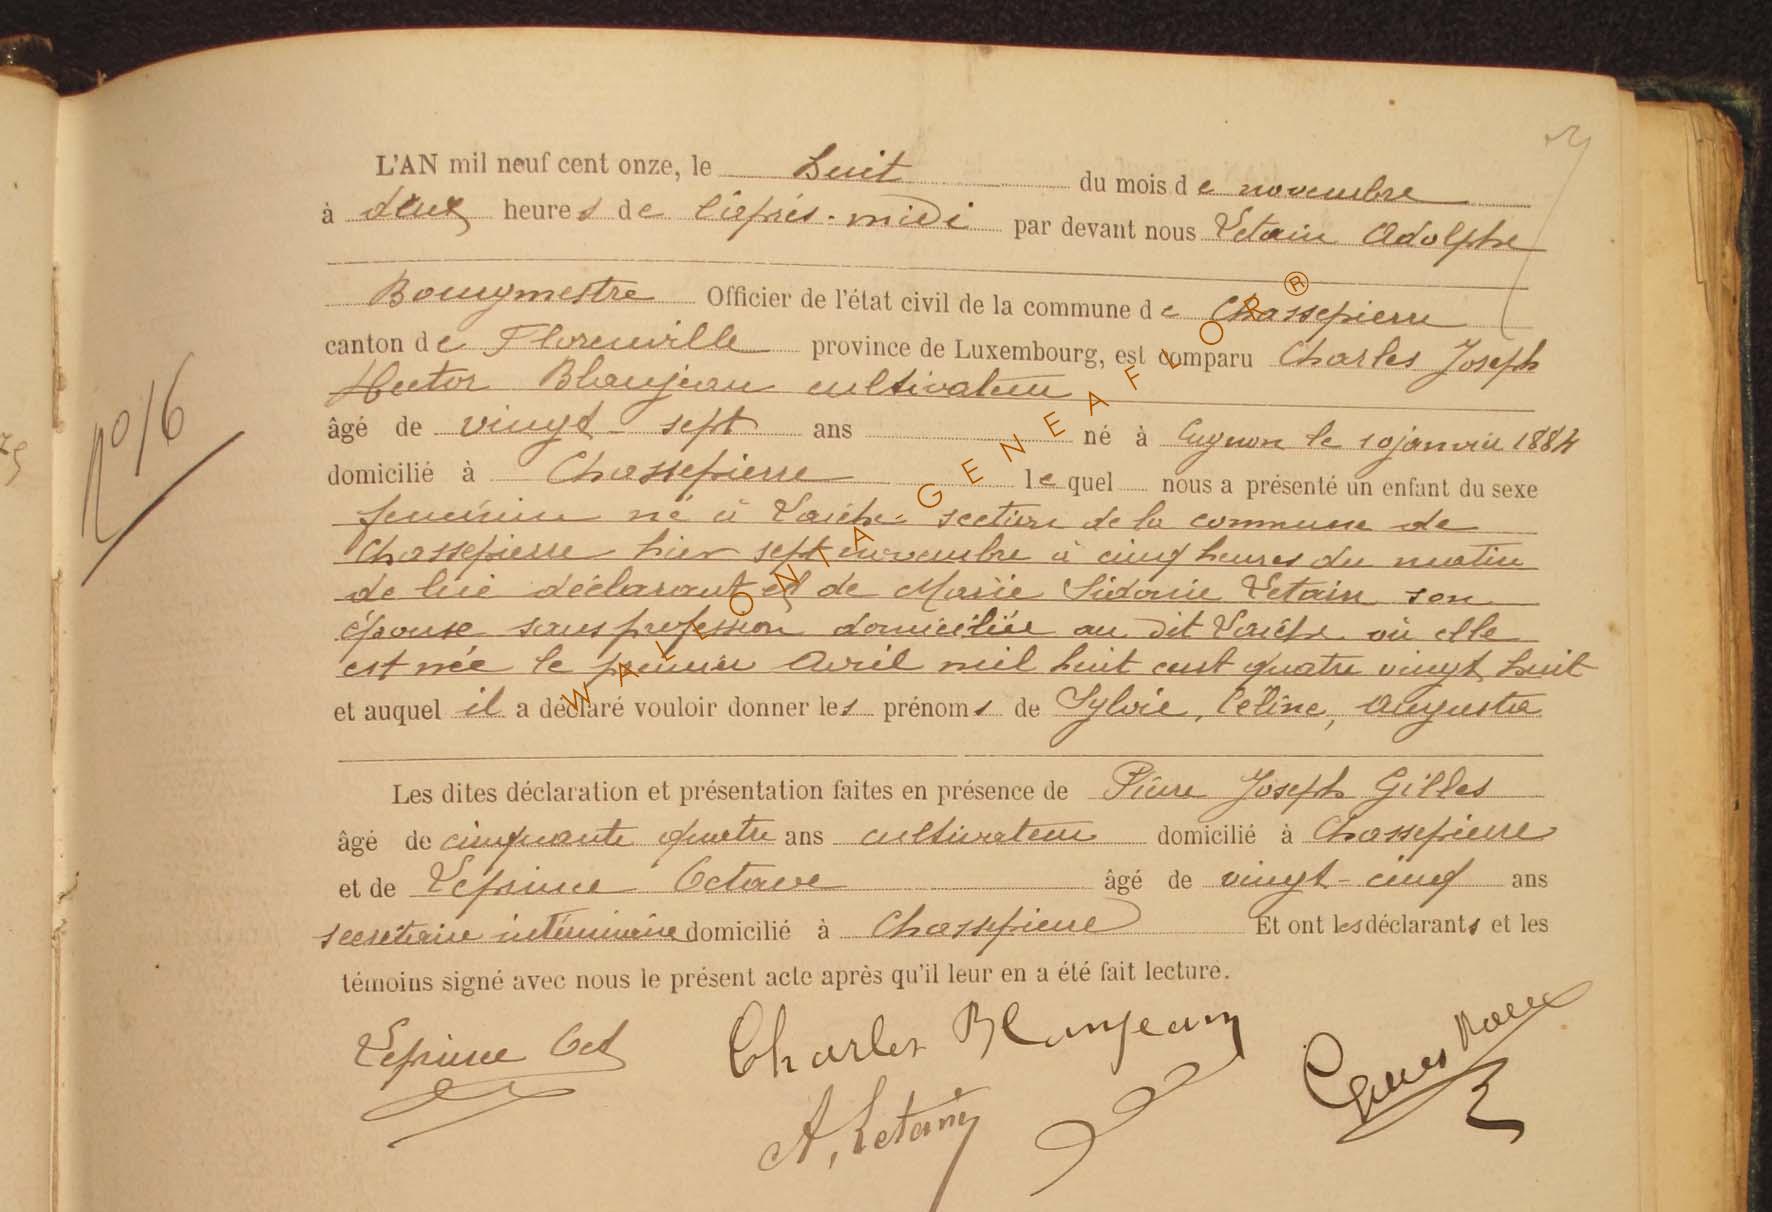 L'AN mil neuf cent onze, le huit du mois de novembre
à deux heures de l'après-midi par devant nous Letain Adolphe
Bourgmestre Officier de l'état civil de la commune de Chassepierre
canton de Florenville province de Luxembourg, est comparu Charles Joseph
Hector Blanjean cultivateur
âgé de vingt-sept ans né à Cugnon le 10 janvier 1884
N° 16
domicilié à Chassepierre lequel nous a présenté un enfant du sexe
féminin né à Laiche section de la commune de
Chassepierre hier sept novembre à cinq heures du matin
de lui déclarant et de Marie Sidonie Letain son
épouse sans profession domiciliée au dit Laiche où elle
est née le premier Avril mil huit cent quatre vingt huit
et auquel il a déclaré vouloir donner les prénoms de Sylvie, Céline, Augusta
Les dites déclaration et présentation faites en présence de Pierre Joseph Gilles
âgé de cinquante quatre ans cultivateur domicilié à Chassepierre
et de Leprince Octave âgé de vingt-cinq ans
secrétaire intérimaire domicilié à Chassepierre Et ont les déclarants et les
témoins signé avec nous le présent acte après qu'il leur en a été fait lecture.
Leprince Oct
Charles Blanjean
A, Letain
WALLONIA GENEAFLOR ®